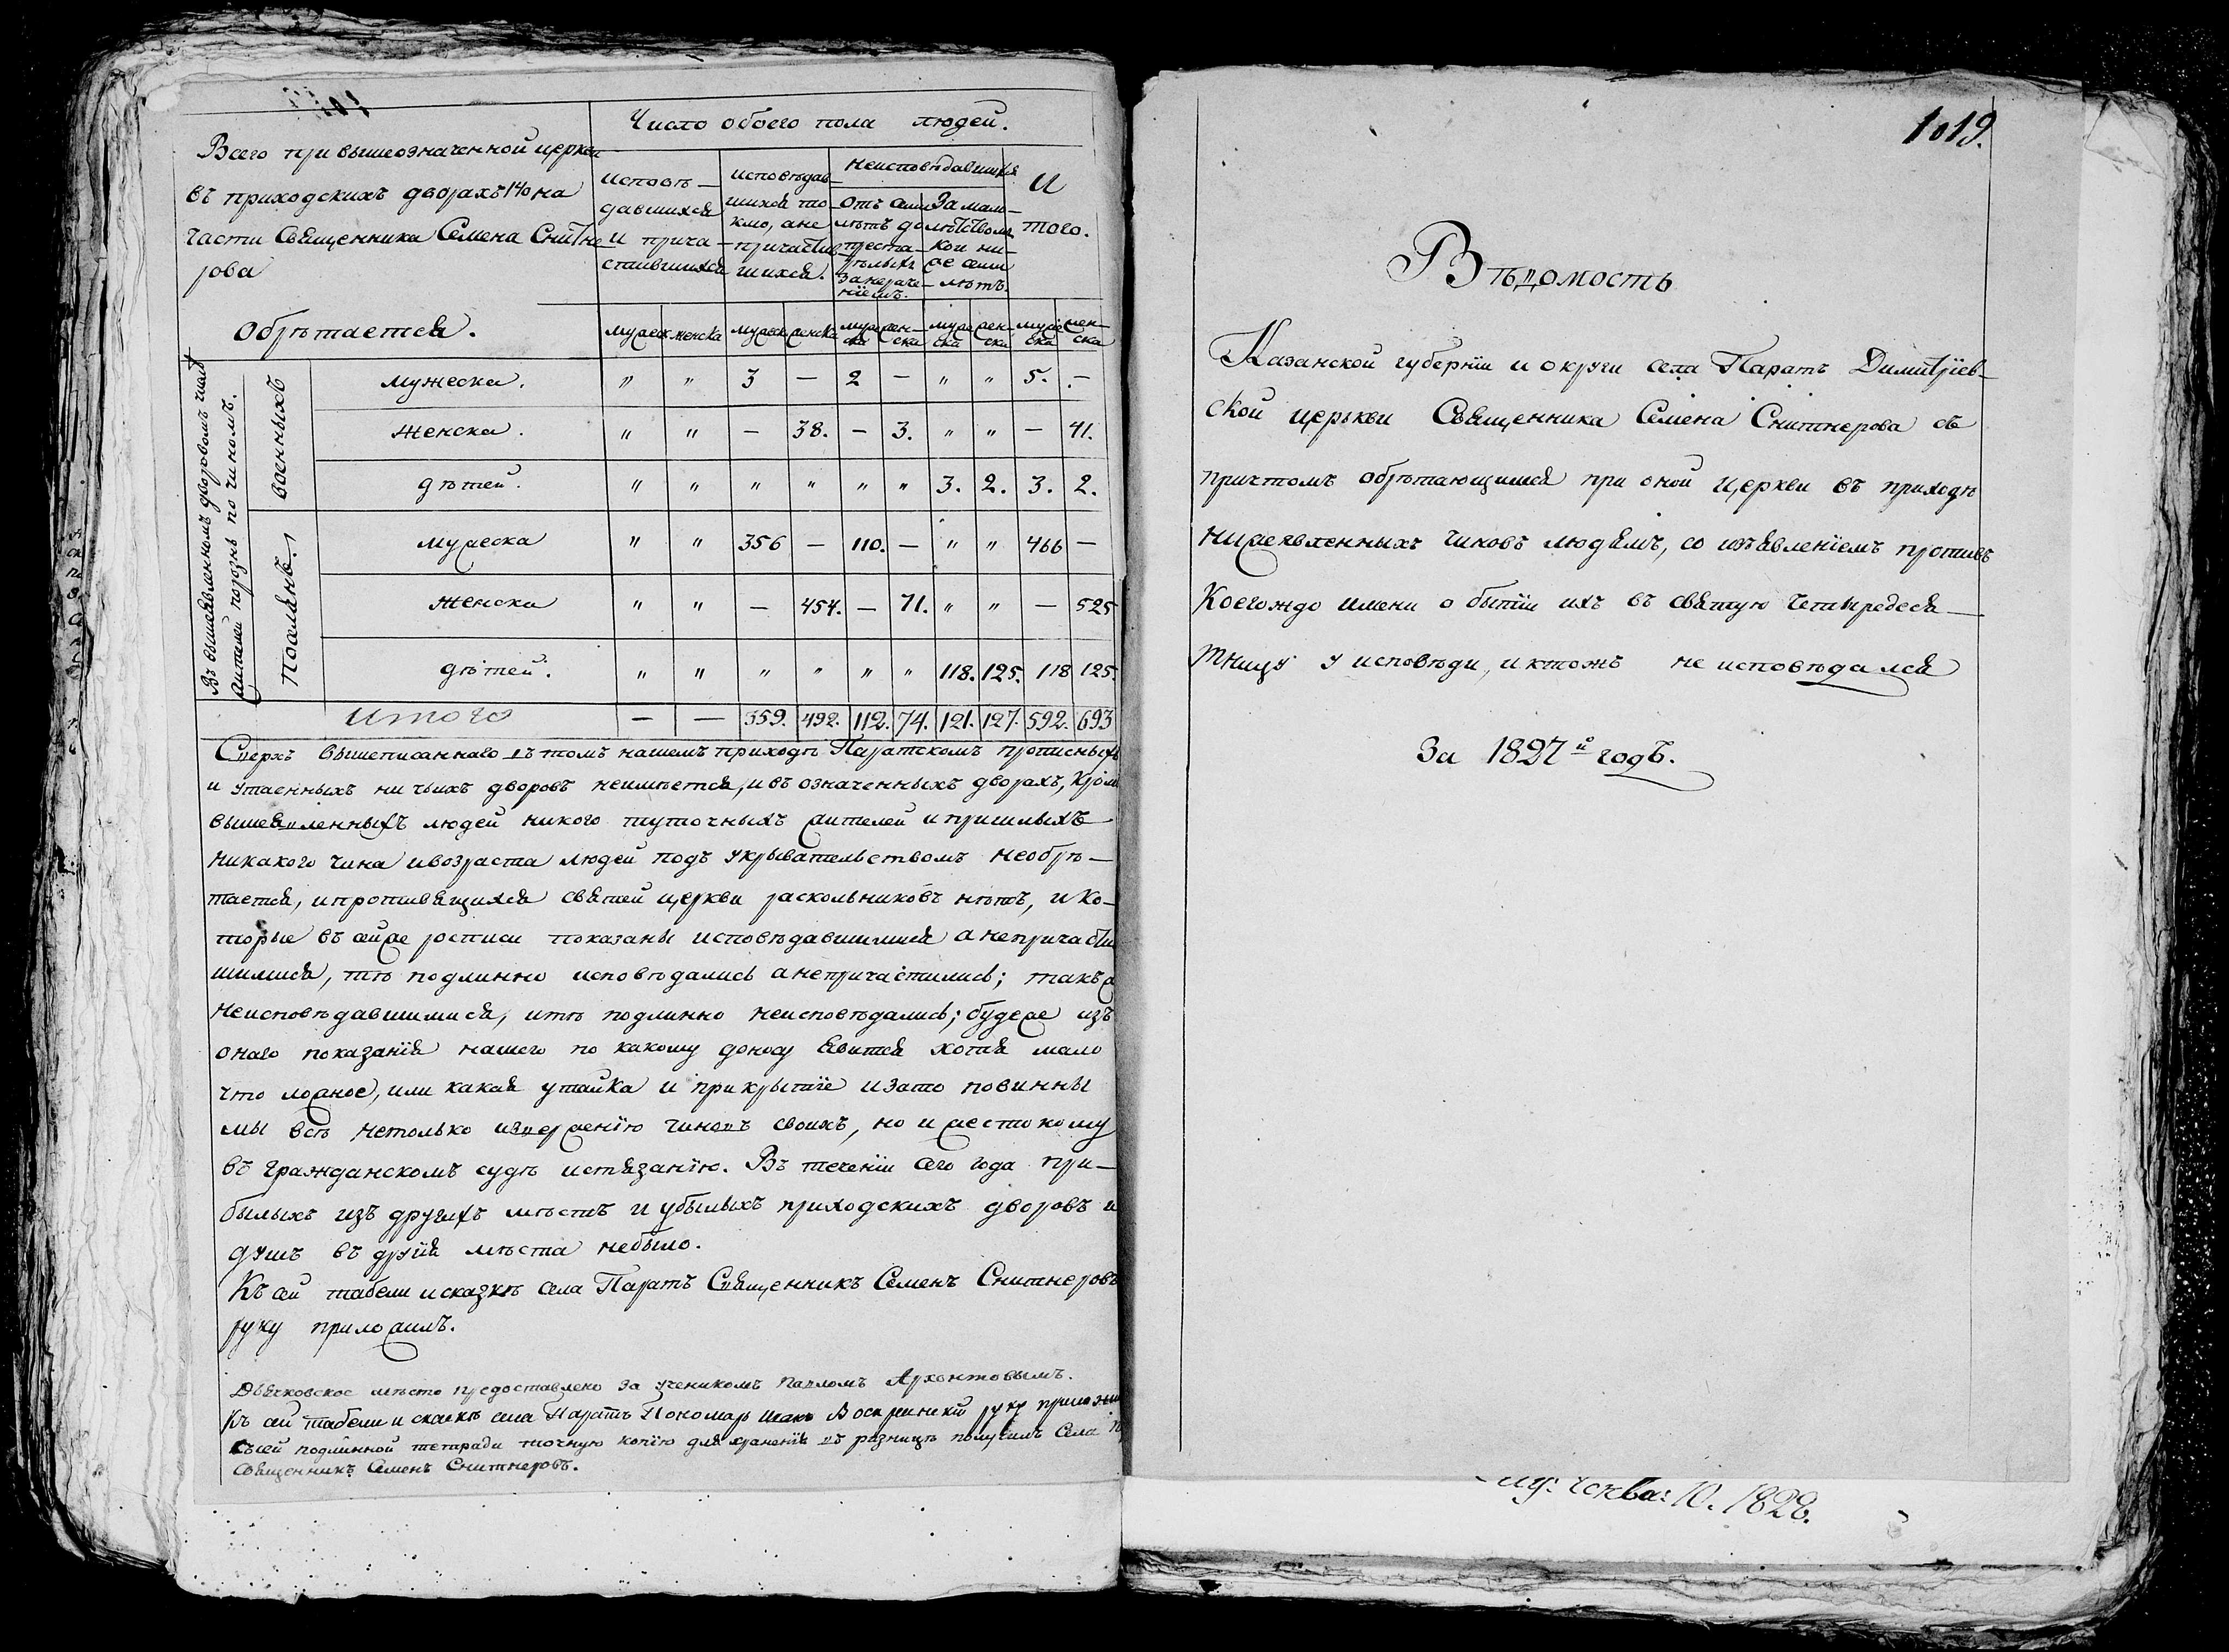 Число обоего пола людей.
Всего при вышеозначенной церкви
въ приходскихъ дворахъ 140 на
части Священника Семена Снитне
рова
Обрѣтается.
исповѣ—
давшихся
и прича—
стившихся
исповѣдав—
шихся то—
кмо, а не
причастив—
шихся.
неисповѣдавшихся
отъ семи
лѣтъ до
преста—
рѣлыхъ
за нераче—
нїемъ.
За мало—
лѣтствомъ
кои ни—
же семи
лѣтъ.
и
того.
мужеск женска мужеск женска муже ска жен— ска муже ска жен— ска муже ска жен— ска
Въ вышеявленномъ дворовомъ числѣ
жителей порознь по чиномъ.
военныхъ
мужеска. " " 3 — 2 — " " 5. —
женска. " " — 38. — 3. " " — 41.
дѣтей. " " " " " " 3. 2. 3. 2.
Поселянъ.
мужеска " " 356 — 110. — " " 466 —
женска " " — 454. — 71. " " — 525
дѣтей. " " " " " " 118. 125. 118 125.
итого — — 359. 492. 112. 74. 121. 127. 592. 693
Сверхъ вышеписаннаго въ томъ нашемъ приходѣ Паратскомъ прописныхъ
и утаенныхъ ни чьихъ дворовъ неимѣется, и въ означенныхъ дворахъ, кромѣ
вышеявленныхъ людей никого туточныхъ жителей и пришлыхъ
никакого чина и возраста людей подъ укрывательствомъ необрѣ—
тается, и противящихся святей церкви раскольниковъ нѣтъ, и ко—
торые въ сейже росписи показаны исповѣдавшимися а непричасти
шимися, тѣ подлинно исповѣдались а непричастились; такъ ж
неисповѣдавшимися, и тѣ подлинно неисповѣдались; будеже изъ
онаго показанїя нашего по какому доносу явится хотя мало
что ложное, или какая утайка и прикрытїе и зато повинны
мы всѣ нетолько изверженїю чиновъ своихъ, но и жестокому
въ гражданскомъ судѣ истязанїю. Въ теченїи сего года при—
былыхъ изъ другихъ мѣстъ и убылыхъ приходскихъ дворовъ и
душъ въ другїя мѣста небыло.
Къ сей табели и сказкѣ села Паратъ Священникъ Семенъ Снитнеровъ
руку приложилъ.
Дьячковское мѣсто предоставлено за ученикомъ Павломъ Архонтовымъ.
Къ сей табели и сказкѣ села Паратъ Пономарь Воскресенскїй руку приложи
Съ сей подлинной тетради точную копїю для храненїя въ ризницѣ получилъ Села П
Священникъ Семенъ Снитнеровъ.
1019.
Вѣдомость
Казанской губернїи и округи села Паратъ Димитрїев—
ской церькви Священника Семена Снитнерова съ
причтомъ обрѣтающимися при оной церкви въ приходѣ
нижеявленныхъ чиновъ людямъ, со изъявленїемъ противъ
Коегождо имени о бытїи ихъ въ святую четыредеся—
тницу у исповѣди, и ктожъ не исповѣдался
За 1827й годъ.
10. 1828.